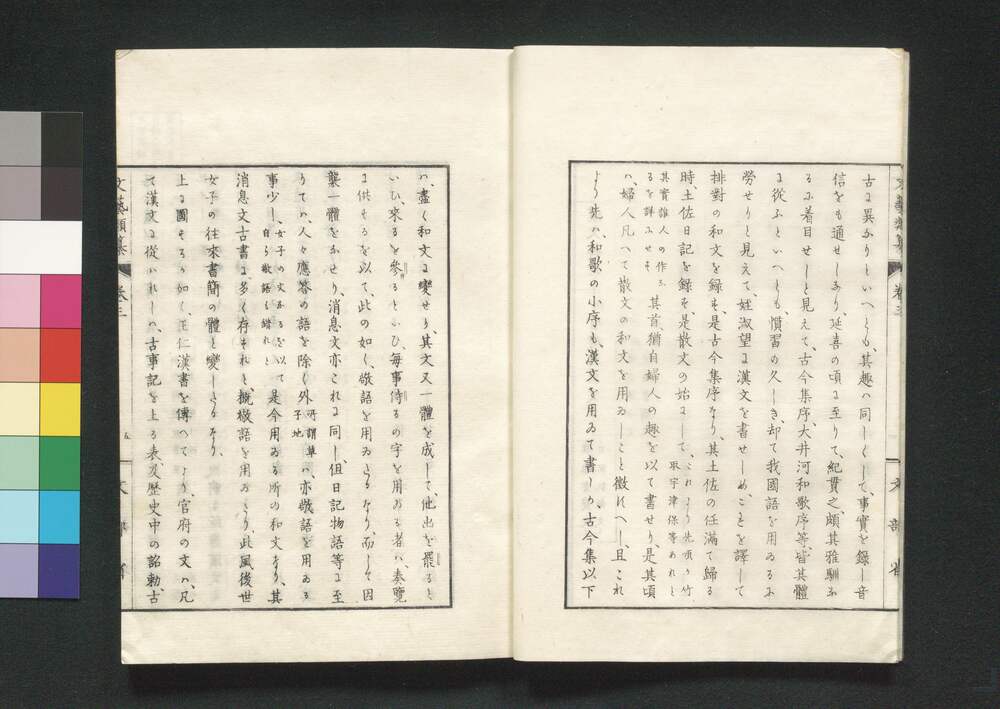 古に異なりといへとも、其趣ハ同しくして、事實を録し音
信をも通せしなり、延喜の頃に至りて、紀貫之、頗其雅馴な
るに着目せしと見えて、古今集序、大井河和歌序等、皆其體
に從ふといへとも、慣習の久しき、却て我國語を用ゐるに
勞せりと見えて、姪淑望に漢文を書せしめ、ことを譯して
排對の和文を録す、是古今集序なり、其土佐の任滿て歸る
時、土佐日記を録す、是散文の始にて、これより先竹
取宇津保等あれと
其實誰人の作な
るを詳にせす
其首、猶自婦人の趣を以て書せり是其頃
ハ、婦人凡へて散文の和文を用ゐしこと徴れへし、且これ
より先ハ、和歌の小序も、漢文を用ゐて書しか、古今集以下
文藝類纂
卷三
文部省
ハ、盡く和文に變せり、其文又一體を成して、他出を罷ると
いひ、來るを參るといひ、毎事侍るの字を用ゐる者ハ、奏覽
に供するを以て、此の如く、敬語を用ゐたるなり、而して因
襲一體をなせり、消息文亦これに同し、但日記物語等に至
りてハ、人々應答の語を除く外
所謂草
子地
ハ、亦敬語を用ゐる
事少し、
女子の文なるを以て
自ら敬語も雜れと
是今用ゐる所の和文なり、其
消息文古書に、多く存すれと、概敬語を用ゐたり、此風後世
女子の往來書簡の體と變したるなり、
上に圖するか如く、王仁漢書を傳へてより、官府の文ハ、凡
て漢文に從ハれしハ、古事記を上る表及歴史中の詔勅、古
文藝類纂
卷三
五
文部省